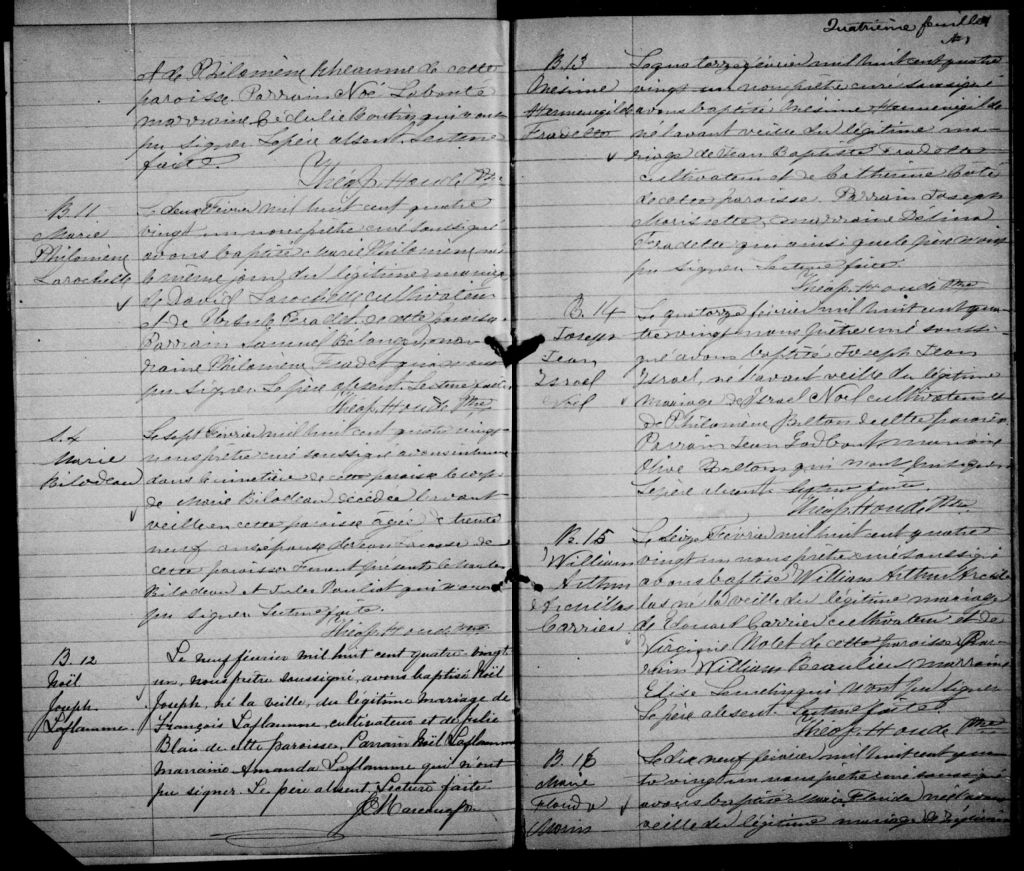 et de Philomène Rhéaume de cette
paroisse. Parrain Noé Labonté
marraine Cédulie Boutin qui n'ont
pu signer. Le père absent. Lecture
faite.
Théop. Houde Ptre
B. 11
Marie
Philomène
Larochelle
Le deux Février mil huit cent quatre
vingt un nous prêtre curé soussigné
avons baptisé Marie Philomène née
le même jour du légitime mariage
de David Larochelle cultivateur
et de Ursule Fradet de cette paroisse
Parrain Samuel Bélanger mar-
raine Philomène Fradet qui n'ont
pu signer. Le père absent. Lecture faite
Théop. Houde Ptre
S. 4
Marie
Bilodeau
Le sept Février mil huit cent quatre vingt
nous prêtre curé soussigné avons inhumé
dans le cimetière de cette paroisse le corps
de Marie Bilodeau décédée l'avant
veille en cette paroisse âgée de trente
neuf ans épouse de
cette paroisse. Furent présents Charles
Bilodeau et Jules Pouliot qui n'ont
pu signer. Lecture faite.
Théop. Houde Ptre
B. 12
Noël
Joseph
Laflamme
Le neuf février mil huit cent quatre vingt
un, nous prêtre soussigné, avons baptisé Noël
Joseph, né la veille, du légitime mariage de
François Laflamme, cultivateur et de Julie
Blais de cette paroisse. Parrain Noël Laflamme
Marraine Amanda Laflamme qui n'ont
pu signer. Le père absent. Lecture faite
Quatrième feuillet
B. 13
Onésime
Herménégilde
Fradette
Le quatorze février mil huit cent quatre
vingt un nous prêtre curé soussigné
avons baptisé Onésime Herménégilde
né l'avant veille du légitime ma-
riage de Jean Baptiste Fradette
cultivateur et de Catherine Coté
de cette paroisse. Parrain Joseph
Morissette, marraine Délima
Fradette qui ainsi que le père n'ont
pu signer. Lecture faite
Théop. Houde Ptre
B. 14
Joseph
Jean
Israel
Noël
Le quatorze février mil huit cent qua-
tre vingt nous prêtre curé soussi-
gné avons baptisé Joseph Jean
Israel, né l'avant veille du légitime
mariage de Israel Noël cultivateur et
de Philomène Belton de cette paroisse
Parrain Jean Godbout marraine
Olive Belton qui n'ont pu signer
Le père absent. Lecture faite.
Théop. Houde Ptre
B. 15
William
Arthur
Archillas
Carrier
Le seize Février mil huit cent quatre
vingt un nous prêtre curé soussigné
avons baptisé William Arthur Archil-
las né la veille du légitime mariage
de Edouard Carrier cultivateur et de
Virginie Nolet de cette paroisse. Par-
rain William Beaulieu marraine
Elise qui n'ont pu signer
Le père absent. Lecture faite.
Théop. Houde Ptre
B. 16
Marie
Florida
Morin
Le dix neuf février mil huit cent qua-
tre vingt un nous prêtre curé soussigné
avons baptisé Marie Florida née l'avant
veille du légitime mariage de